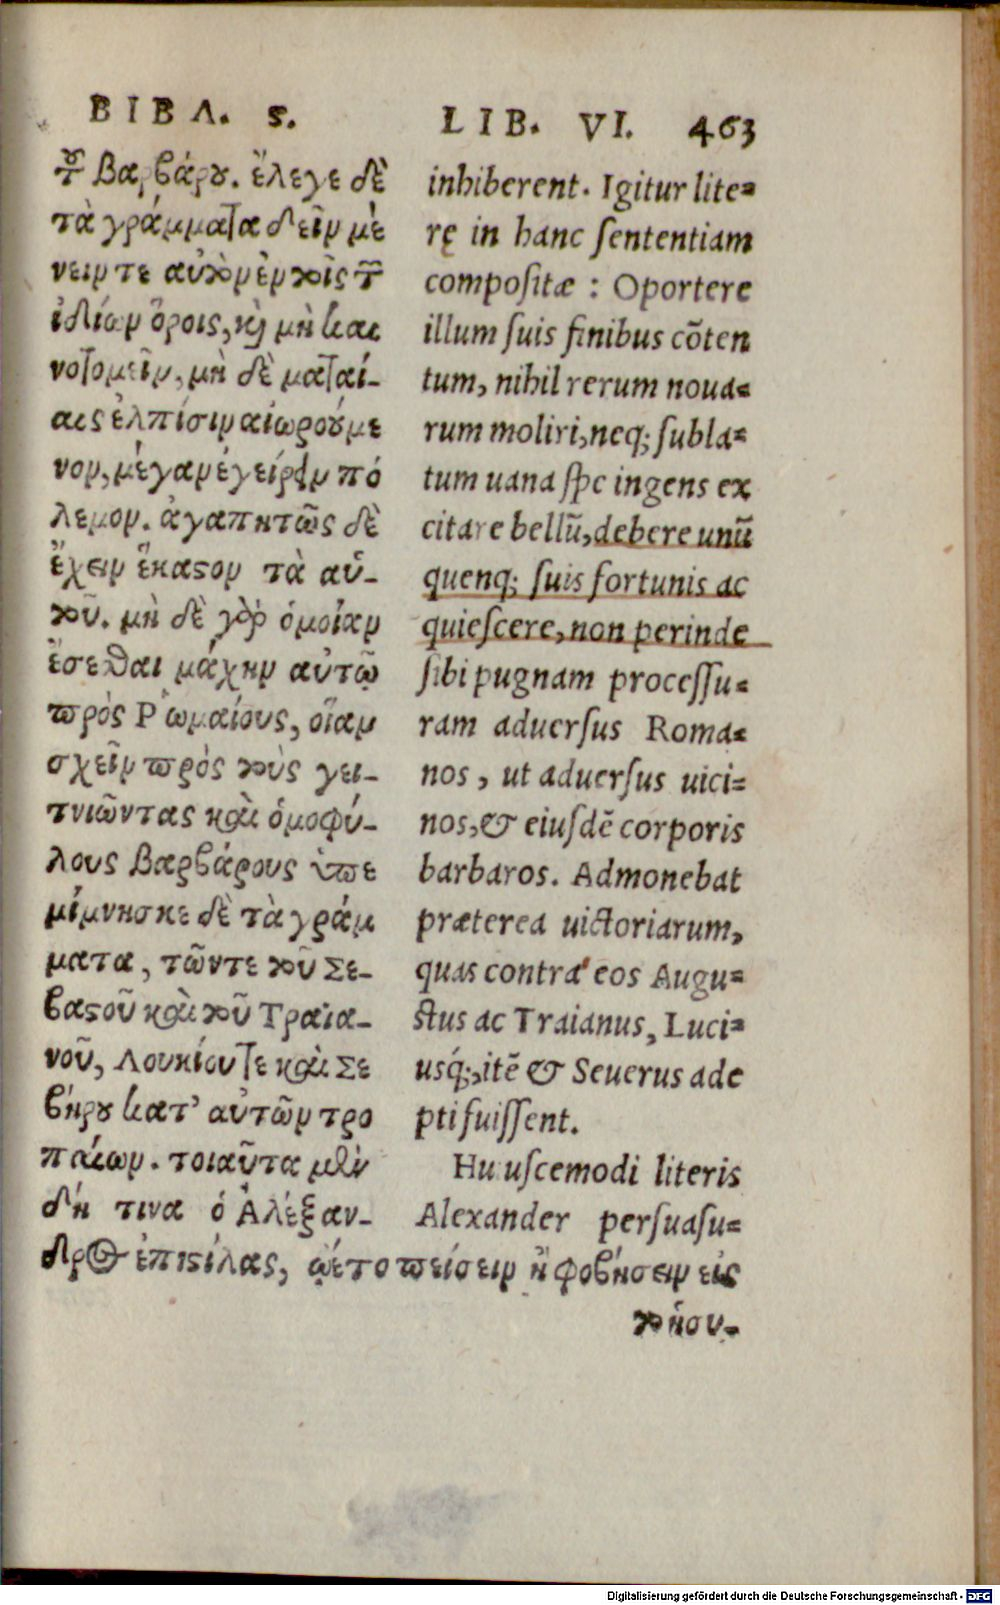 ΒΙΒΛ. ς.
τοῦ βαρβάρου. ἔλεγε δὲ
τὰ γράμματα δεῖν μέ
νειν τε αὐτὸν ἐν τοῖς τῶν
ἰδίων ὅροις, καὶ μὴ και
νοτομεῖν, μὴ δὲ ματαί-
αις ἐλπίσιν αἰωρούμε
νον, μέγαν ἐγείρειν πό
λεμον. ἀγαπητῶς δὲ
ἔχειν ἕκαστον τὰ αὑ-
τοῦ. μὴ δὲ γὰρ ὁμοίαν
ἔσεσθαι μάχην αὐτῷ
πρὸς Ῥωμαίους, οἵαν
σχεῖν πρὸς τοὺς γει-
τνιῶντας καὶ ὁμοφύ-
λους βαρβάρους ὑπε
μίμνησκε δὲ τὰ γράμ
ματα, τῶντε τοῦ Σε-
βαστοῦ καὶ τοῦ Τραϊα-
νοῦ, Λουκίου τε καὶ Σε
βήρου κατ' αὐτῶν τρο
παίων. τοιαῦτα μὲν
δή τινα ὁ Ἀλέξαν-
δρος ἐπιστίλας, ᾤετο πείσειν ἢ φοβήσειν εἰς
τὸ ἡσυ-
LIB. VI. 463
inhiberent. Igitur lite=
rę in hanc ſententiam
compoſitæ : Oportere
illum ſuis finibus cōten
tum, nihil rerum noua=
rum moliri, neq; ſubla=
tum uana ſpe ingens ex
citare bellū, debere unū
quenq; ſuis fortunis ac
quieſcere, non perinde
ſibi pugnam proceſſu=
ram aduerſus Roma=
nos, ut aduerſus uici=
nos, & eiuſdē corporis
barbaros. Admonebat
præterea uictoriarum,
quas contra eos Augu=
ſtus ac Traianus, Luci=
usq́;, itē & Seuerus ade
pti fuiſſent.
Hu uſcemodi literis
Alexander perſuaſu=
Digitalisierung gefördert durch die Deutsche Forschungsgemeinschaft - DFG